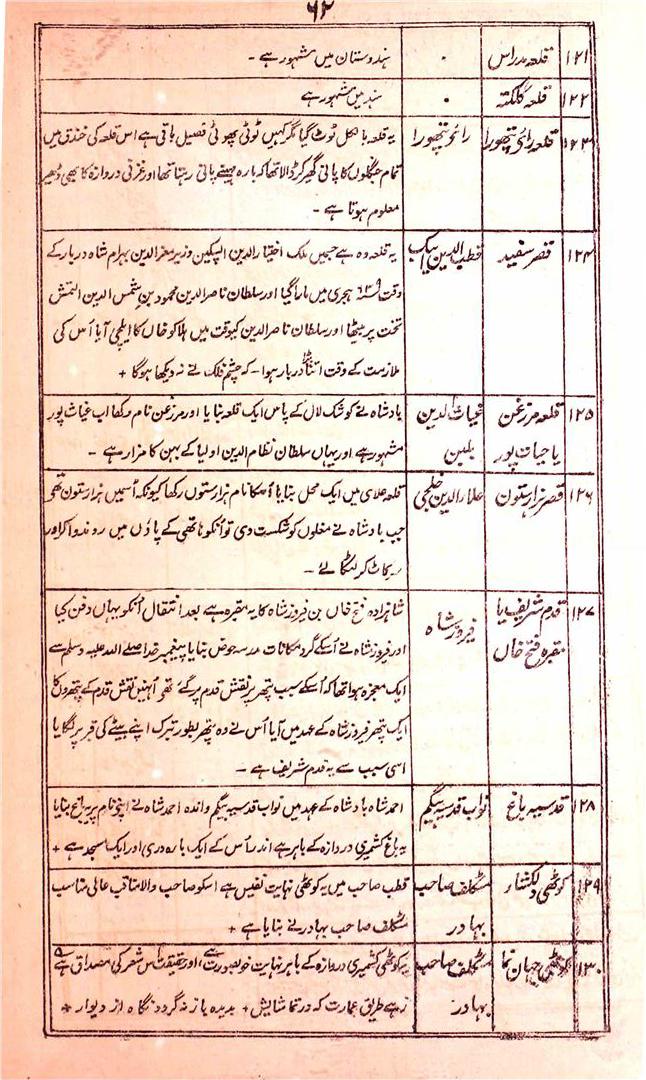 ۶۲
۱۲۱ قلعہ مدراس ۰ ہندوستان میں مشہور ہے -
۱۲۲ قلعہ کلکتہ ۰ ہند میں مشہور ہے
۱۲۳ قلعہ رائی پتھورا رائی پتھورا یہ قلعہ بالکل ٹوٹ گیا مگر کہیں ٹوٹی پھوٹی فصیل باقی ہے اس قلعہ کی خندق میں
تمام جنگلوں کا پانی گھیر کر ڈالا تھا کہ بارہ مہینے پانی رہتا تھا اور غزنی دروازہ کا بھی ڈھیر
معلوم ہوتا ہے -
۱۲۴ قصر سفید قطب الدین ایبک یہ قلعہ وہ ہے جسمیں ملک اختیار الدین الپتگین وزیر معز الدین بہرام شاہ دربار کے
وقت ۶۳۹ ہجری میں مارا گیا اور سلطان ناصر الدین محمود بن شمس الدین التمش
تخت پر بیٹھا اور سلطان ناصر الدین کیوقت میں ہلاکو خاں کا ایلچی آیا اُس کی
ملازمت کے وقت اتنا دربار ہوا - کہ چشم فلک نے نہ دیکھا ہوگا +
۱۲۵ قلعہ مرزغن غیاث الدین بادشاہ نے کوشک لال کے پاس ایک قلعہ بنایا اور مرزغن نام رکھا اب غیاث پور
یا غیاث پور بلبن مشہور ہے اور یہاں سلطان نظام الدین اولیا کے بہن کا مزار ہے -
۱۲۶ قصر ہزار ستون علاء الدین خلجی قلعہ علای میں ایک محل بنایا اُسکا نام ہزار ستوں رکھا کیونکہ اُسمیں ہزار ستون تھے
جب بادشاہ نے مغلوں کو شکست دی تو اُنکو ہاتھی کے پاؤں میں روندوا کر اور
سر کاٹ کر لٹکائے -
۱۲۷ قدم شریف یا فیروز شاہ شاہزادہ فتح خاں بن فیروز شاہ کا یہ مقبرہ ہے بعد انتقال اُنکو یہاں دفن کیا
مقبرہ فتح خاں اور فیروز شاہ نے اُسکے گرد مکانات مدرسہ حوض بنایا پیغمبر خدا صلے اللہ علیہ وسلم سے
ایک معجزہ ہوا تھا کہ اُسکے سبب پتھر پر نقش قدم پڑ گئے تھے اُنہیں نقش قدم کے پتھروں کا
ایک پتھر فیروز شاہ کے عہد میں آیا اُس نے وہ پتھر بطور تبرک اپنے بیٹے کی قبر پر لگایا
اسی سبب سے یہ قدم شریف ہے -
۱۲۸ قدسیہ باغ نواب قدسیہ بیگم احمد شاہ بادشاہ کے عہد میں نواب قدسیہ بیگم والدہ احمد شاہ نے اپنے نام پر یہ باغ بنایا
یہ باغ کشمیری دروازہ کے باہر ہے اندر اُس کے ایک بارہ دری اور ایک مسجد ہے +
۱۲۹ کوٹھی دلکشا مٹکلف صاحب قطب صاحب میں یہ کوٹھی نہایت نفیس ہے اسکو صاحب والا مناقب عالی مناسب
بہادر مٹکلف صاحب بہادر نے بنایا ہے +
۱۳۰ کوٹھی جہان نما مٹکلف صاحب یہ کوٹھی کشمیری دروازہ کے باہر نہایت خوبصورت ہے، اور حقیقت اس شعر کی مصداق ہے
بہادر زہے طریق عمارت کہ در تماشایش + بدیدہ باز نہ گردد نگاہ از دیوار +